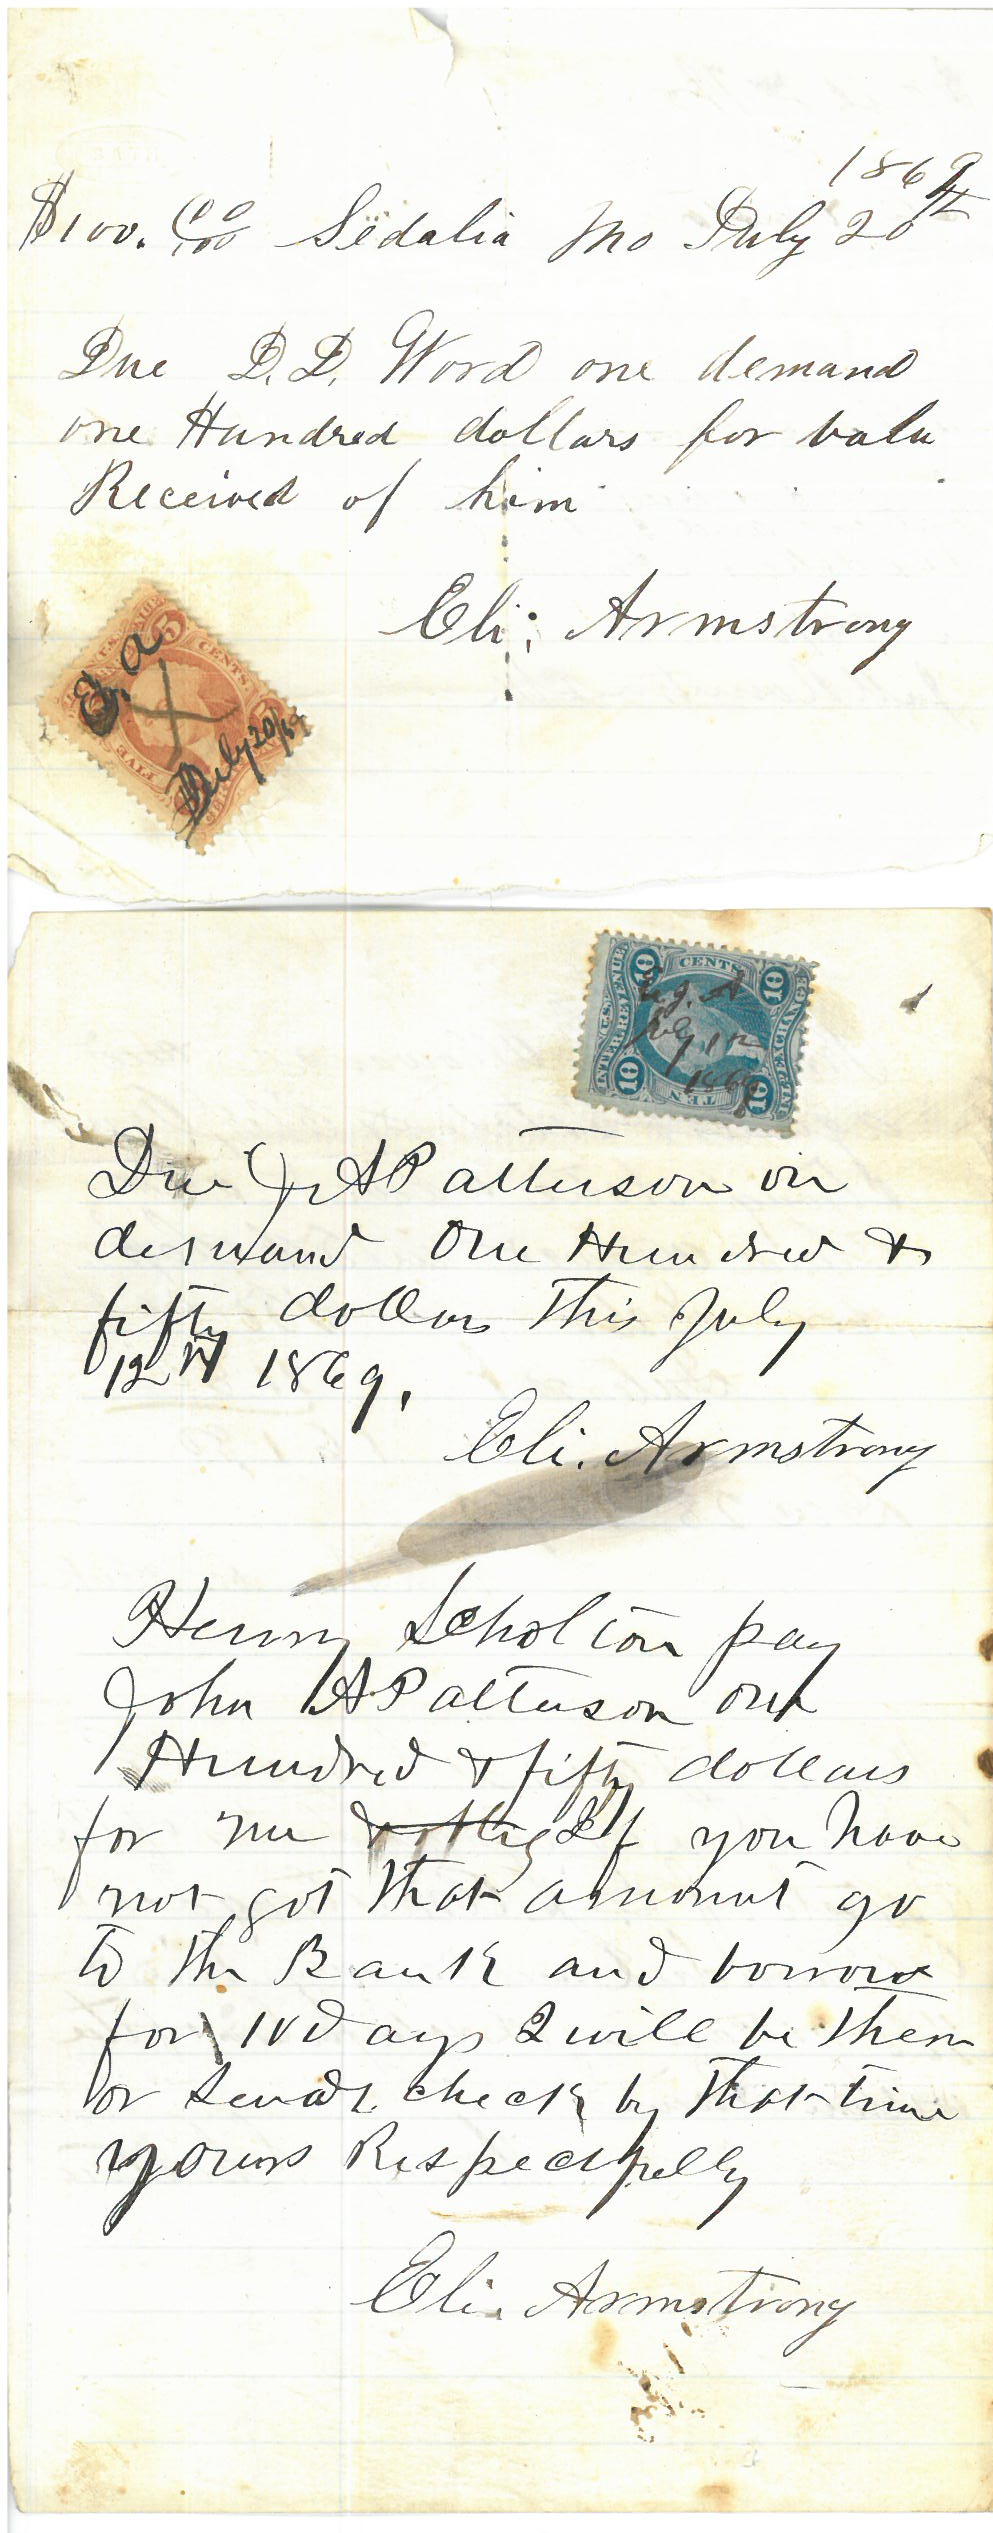 1869
$100. 00/100 Sedalia Mo July 20th
Due D. D. Word one demand
one Hundred dollars for valu
Received of him
Eli. Armstrong
5 CENTS.
FIVE
E. A
July 20/69
U.S. INTER. REVENUE
10 CENTS 10
INLAND EXCHANGE
10 TEN 10
July 12
1869
Due J. A Patterson on
demand One Hundred &
fifty dollars This July
12th 1869.
Eli. Armstrong
Henry Scholton pay
John A Patterson one
Hundred & fifty dollars
for me If you have
not got that amount go
to the Bank and borrow
for 10 days I will be there
or send check by that time
yours Respectfully
Eli. Armstrong